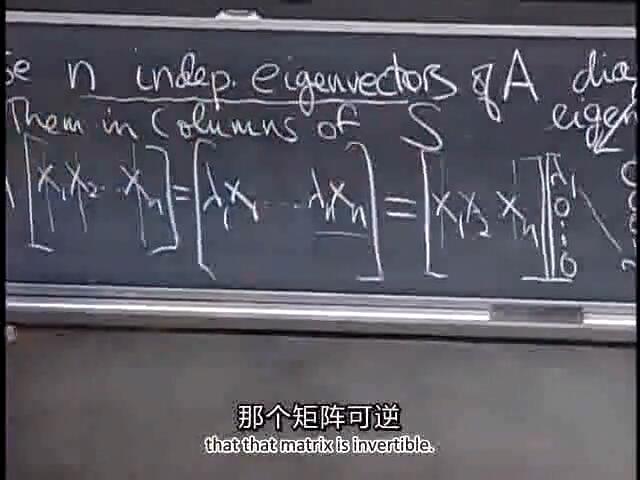 n indep. eigenvectors of A dia
Them in Columns of S eigen
[x₁ x₂ ⋯ xₙ] = [λ₁x₁ ⋯ λₙxₙ] = [x₁ x₂ xₙ] [λ₁ 0 ⋮ 0
那个矩阵可逆
that that matrix is invertible.